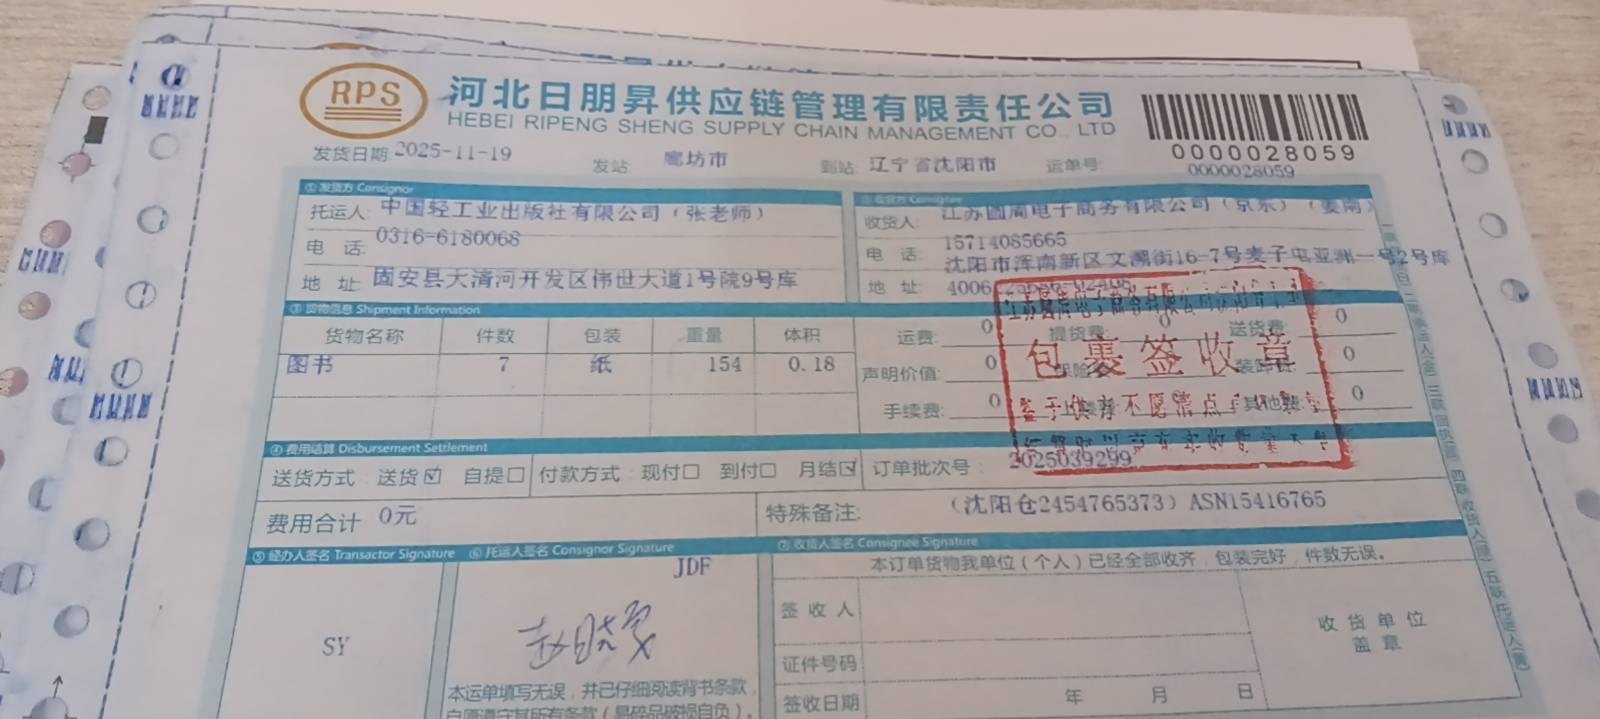 RPS 河北日朋昇供应链管理有限责任公司
HEBEI RIPENG SHENG SUPPLY CHAIN MANAGEMENT CO., LTD
0000028059
发货日期: 2025-11-19 发站: 廊坊市 到站: 辽宁省沈阳市 运单号: 0000028059
①发货方 Consignor
托运人: 中国轻工业出版社有限公司（张老师）
电 话: 0316-6180068
地 址: 固安县大清河开发区伟世大道1号院9号库
②收货方 Consignee
收货人: 江苏圆周电子商务有限公司（京东）（姜南）
电 话: 15714085665
沈阳市浑南新区文溯街16-7号麦子屯亚洲一号2号库
地 址: 4006
③货物信息 Shipment Information
货物名称 件数 包装 重量 体积
图书 7 纸 154 0.18
运费: 0 提货费: 0 送货费: 0
声明价值: 0 0 装卸费: 0
手续费: 0 其他 0
包裹签收章
不愿清点
④费用结算 Disbursement Settlement
送货方式: 送货☑ 自提☐ 付款方式: 现付☐ 到付☐ 月结☑ 订单批次号: 2025039299
费用合计 0元 特殊备注: （沈阳仓2454765373）ASN15416765
⑤经办人签名 Transactor Signature ⑥托运人签名 Consignor Signature ⑦收货人签名 Consignee Signature
JDF
本订单货物我单位（个人）已经全部收齐，包装完好，件数无误。
SY
签收人
证件号码
签收日期 年 月 日
收货单位
盖章
本运单填写无误，并已仔细阅读背书条款，
自愿遵守其所有条款（易碎品破损自负）。